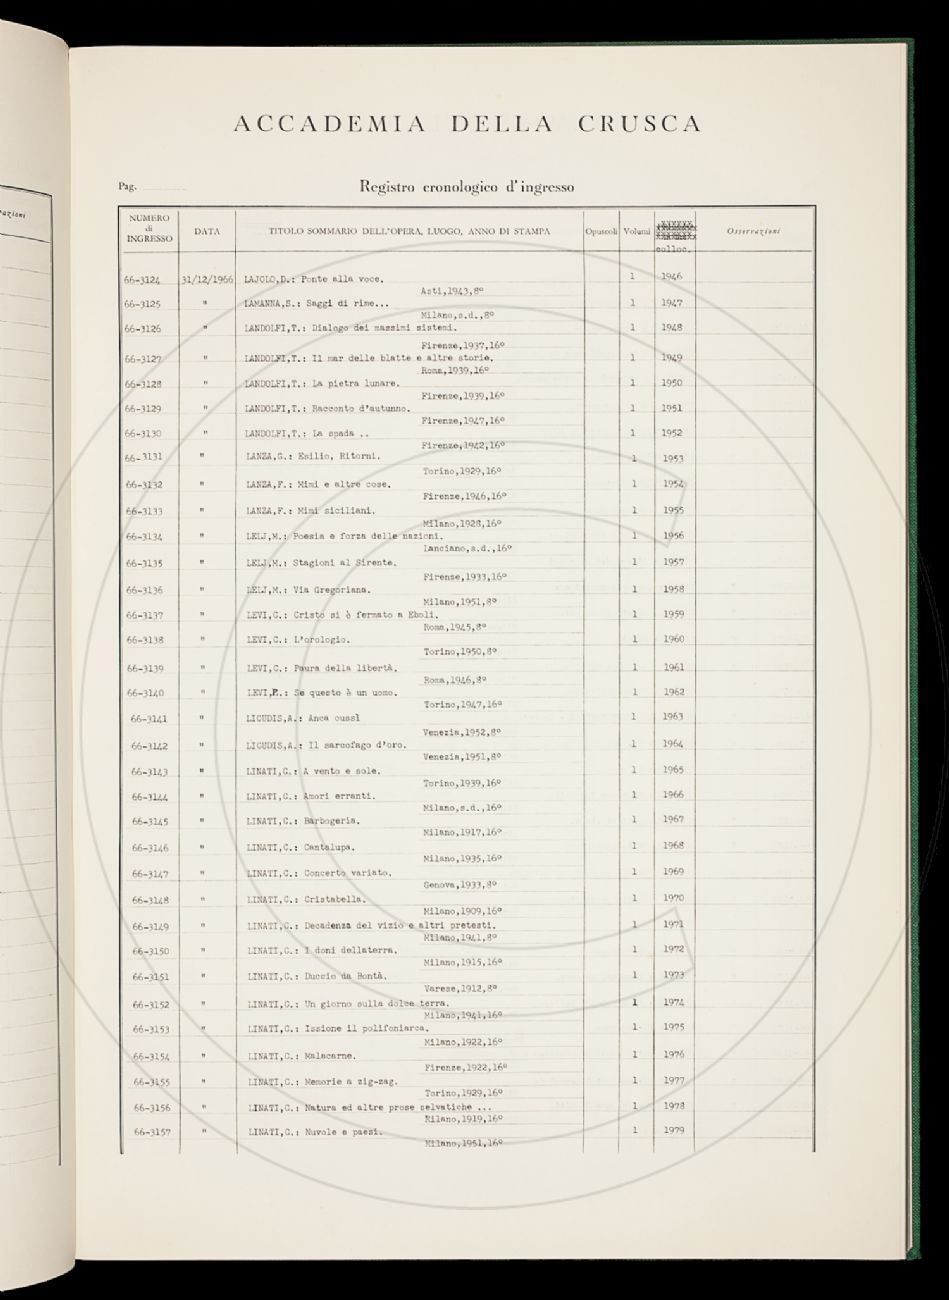 azioni
ACCADEMIA DELLA CRUSCA
Pag.
Registro cronologico d'ingresso
NUMERO di INGRESSO DATA TITOLO SOMMARIO DELL'OPERA, LUOGO, ANNO DI STAMPA Opuscoli Volumi colloc. Osservazioni
66-3124 31/12/1966 LAJOLO,D.: Ponte alla voce. 1 1946
Asti,1943,8º
66-3125 " LAMANNA,S.: Saggi di rime... 1 1947
Milano,s.d.,8º
66-3126 " LANDOLFI,T.: Dialogo dei massimi sistemi. 1 1948
Firenze,1937,16º
66-3127 " LANDOLFI,T.: Il mar delle blatte e altre storie. 1 1949
Roma,1939,16º
66-3128 " LANDOLFI,T.: La pietra lunare. 1 1950
Firenze,1939,16º
66-3129 " LANDOLFI,T.: Racconto d'autunno. 1 1951
Firenze,1947,16º
66-3130 " LANDOLFI,T.: La spada .. 1 1952
Firenze,1942,16º
66-3131 " LANZA,G.: Esilio, Ritorni. 1 1953
Torino,1929,16º
66-3132 " LANZA,F.: Mimi e altre cose. 1 1954
Firenze,1946,16º
66-3133 " LANZA,F.: Mimi siciliani. 1 1955
Milano,1928,16º
66-3134 " LELJ,M.: Poesia e forza delle nazioni. 1 1956
Lanciano,s.d.,16º
66-3135 " LELJ,M.: Stagioni al Sirente. 1 1957
Firenze,1933,16º
66-3136 " LELJ,M.: Via Gregoriana. 1 1958
Milano,1951,8º
66-3137 " LEVI,C.: Cristo si è fermato a Eboli. 1 1959
Roma,1945,8º
66-3138 " LEVI,C.: L'orologio. 1 1960
Torino,1950,8º
66-3139 " LEVI,C.: Paura della libertà. 1 1961
Roma,1946,8º
66-3140 " LEVI,P.: Se questo è un uomo. 1 1962
Torino,1947,16º
66-3141 " LICUDIS,A.: Anca oussl 1 1963
Venezia,1952,8º
66-3142 " LICUDIS,A.: Il sarcofago d'oro. 1 1964
Venezia,1951,8º
66-3143 " LINATI,C.: A vento e sole. 1 1965
Torino,1939,16º
66-3144 " LINATI,C.: Amori erranti. 1 1966
Milano,s.d.,16º
66-3145 " LINATI,C.: Barbogeria. 1 1967
Milano,1917,16º
66-3146 " LINATI,C.: Cantalupa. 1 1968
Milano,1935,16º
66-3147 " LINATI,C.: Concerto variato. 1 1969
Genova,1933,8º
66-3148 " LINATI,C.: Cristabella. 1 1970
Milano,1909,16º
66-3149 " LINATI,C.: Decadenza del vizio e altri pretesti. 1 1971
Milano,1941,8º
66-3150 " LINATI,C.: I doni dellaterra. 1 1972
Milano,1915,16º
66-3151 " LINATI,C.: Duccio da Bontà. 1 1973
Varese,1912,8º
66-3152 " LINATI,C.: Un giorno sulla dolce terra. 1 1974
Milano,1941,16º
66-3153 " LINATI,C.: Issione il polifoniarca. 1 1975
Milano,1922,16º
66-3154 " LINATI,C.: Malacarne. 1 1976
Firenze,1922,16º
66-3155 " LINATI,C.: Memorie a zig-zag. 1 1977
Torino,1929,16º
66-3156 " LINATI,C.: Natura ed altre prose selvatiche ... 1 1978
Milano,1919,16º
66-3157 " LINATI,C.: Nuvole e paesi. 1 1979
Milano,1951,16º